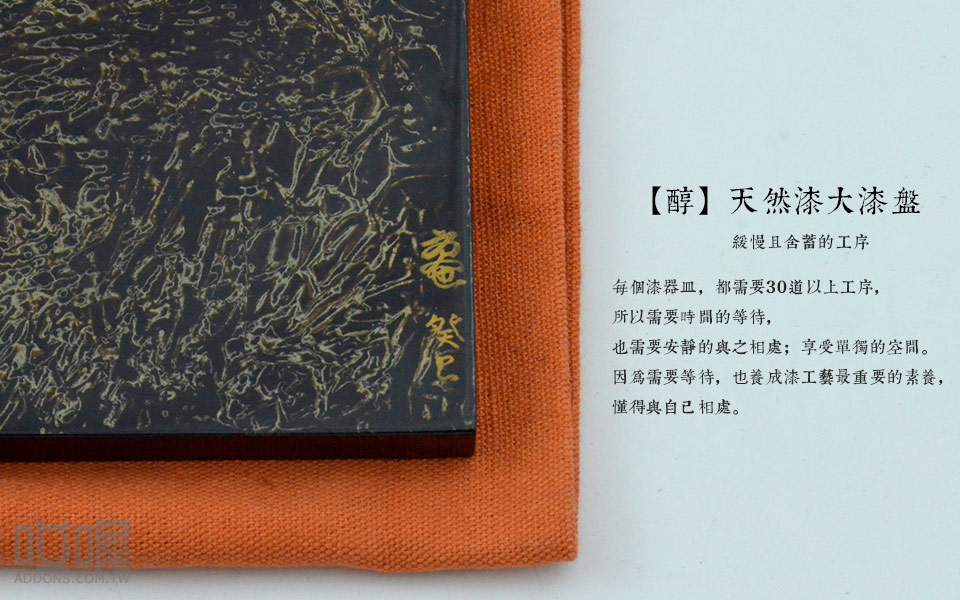 【醇】天然漆大漆盤
緩慢且含蓄的工序
每個漆器皿，都需要30道以上工序，
所以需要時間的等待，
也需要安靜的與之相處；享受單獨的空間。
因爲需要等待，也養成漆工藝最重要的素養，
懂得與自己相處。
癸巳
ADDONS.COM.TW